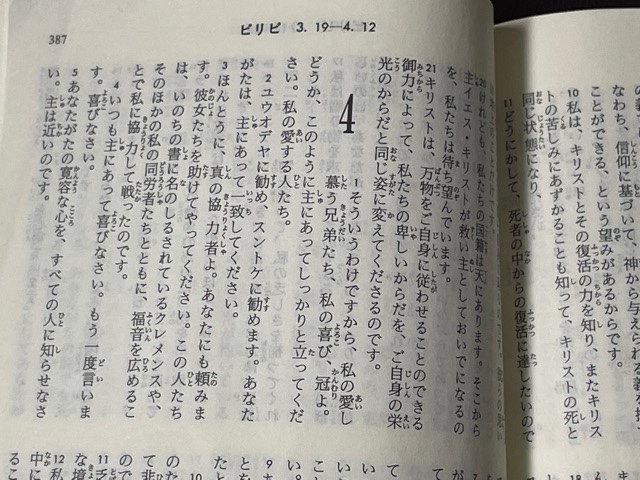 なわち、信仰に基づいて、神から与えられる
ことができる、という望みがあるからです。
10私は、キリストとその復活の力を知り、またキリス
トの苦しみにあずかることも知って、キリストの死と
同じ状態になり、
11どうにかして、死者の中からの復活に達したいので
387
ピリピ 3. 19―4. 12
20けれども、私たちの国籍は天にあります。そこから
主イエス・キリストが救い主としておいでになるの
を、私たちは待ち望んでいます。
21キリストは、万物をご自身に従わせることのできる
御力によって、私たちの卑しいからだを、ご自身の栄
光のからだと同じ姿に変えてくださるのです。
4
1そういうわけですから、私の愛し
慕う兄弟たち、私の喜び、冠よ。
どうか、このように主にあってしっかりと立ってくだ
さい。私の愛する人たち。
2ユウオデヤに勧め、スントケに勧めます。あなた
がたは、主にあって一致してください。
3ほんとうに、真の協力者よ。あなたにも頼みま
す。彼女たちを助けてやってください。この人たち
は、いのちの書に名のしるされているクレメンスや、
そのほかの私の同労者たちとともに、福音を広めるこ
とで私に協力して戦ったのです。
4いつも主にあって喜びなさい。もう一度言いま
す。喜びなさい。
5あなたがたの寛容な心を、すべての人に知らせなさ
い。主は近いのです。
12私
中に
るこ